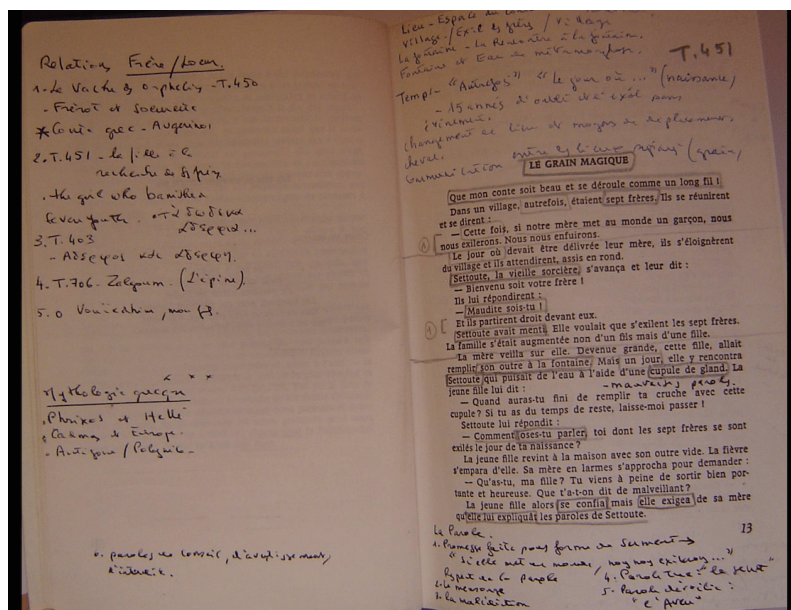 Relations Frère/Soeur.
1. La Vache des orphelins - T.450
- Frérot et Soeurette
* Conte grec - Augerinos
2. T.451 - La fille à la
recherche de ses frères
. the girl who banished
seven youths
3. T.403
4. T.706. Zelgoum. (L'épine).
5. O Vouïedhia, mon fils.
* * *
Mythologie grecque
. Phrixos et Hellé
. Cadmos et Europe.
. Antigone / Polynice
paroles de conseil, d'avertissement,
d'interdit.
Village / Exil des frères / village
La fontaine - La Rencontre à la fontaine.
Fontaine et Eau de métamorphose.
T.451
Temps - "Autrefois" "Le jour où ..." (naissance,
- 15 années
événement.
changement de lieu et moyens de déplacement
cheval.
communication entre (grain,
LE GRAIN MAGIQUE
Que mon conte soit beau et se déroule comme un long fil !
Dans un village, autrefois, étaient sept frères. Ils se réunirent
et se dirent :
— Cette fois, si notre mère met au monde un garçon, nous
nous exilerons. Nous nous enfuirons.
Le jour où devait être délivrée leur mère, ils s'éloignèrent
du village et ils attendirent, assis en rond.
Settoute, la vieille sorcière, s'avança et leur dit :
— Bienvenu soit votre frère !
Ils lui répondirent :
— Maudite sois-tu !
Et ils partirent droit devant eux.
Settoute avait menti. Elle voulait que s'exilent les sept frères.
La famille s'était augmentée non d'un fils mais d'une fille.
La mère veilla sur elle. Devenue grande, cette fille, allait
remplir son outre à la fontaine. Mais un jour, elle y rencontra
Settoute qui puisait de l'eau à l'aide d'une cupule de gland. La
jeune fille lui dit :
- mauvaises paroles.
— Quand auras-tu fini de remplir ta cruche avec cette
cupule ? Si tu as du temps de reste, laisse-moi passer !
Settoute lui répondit :
— Comment oses-tu parler, toi dont les sept frères se sont
exilés le jour de ta naissance ?
La jeune fille revint à la maison avec son outre vide. La fièvre
s'empara d'elle. Sa mère en larmes s'approcha pour demander :
— Qu'as-tu, ma fille ? Tu viens à peine de sortir bien por-
tante et heureuse. Que t'a-t-on dit de malveillant ?
La jeune fille alors se confia mais elle exigea de sa mère
qu'elle lui expliquât les paroles de Settoute.
13
La Parole.
1. Promesse faite sous forme de Serment →
"si elle met au monde, nous nous exilerons..."
Respect de la Parole
2. Le mensonge
3. La malédiction
4. Parole
5. Parole dévoilée :
"L'Aveu"